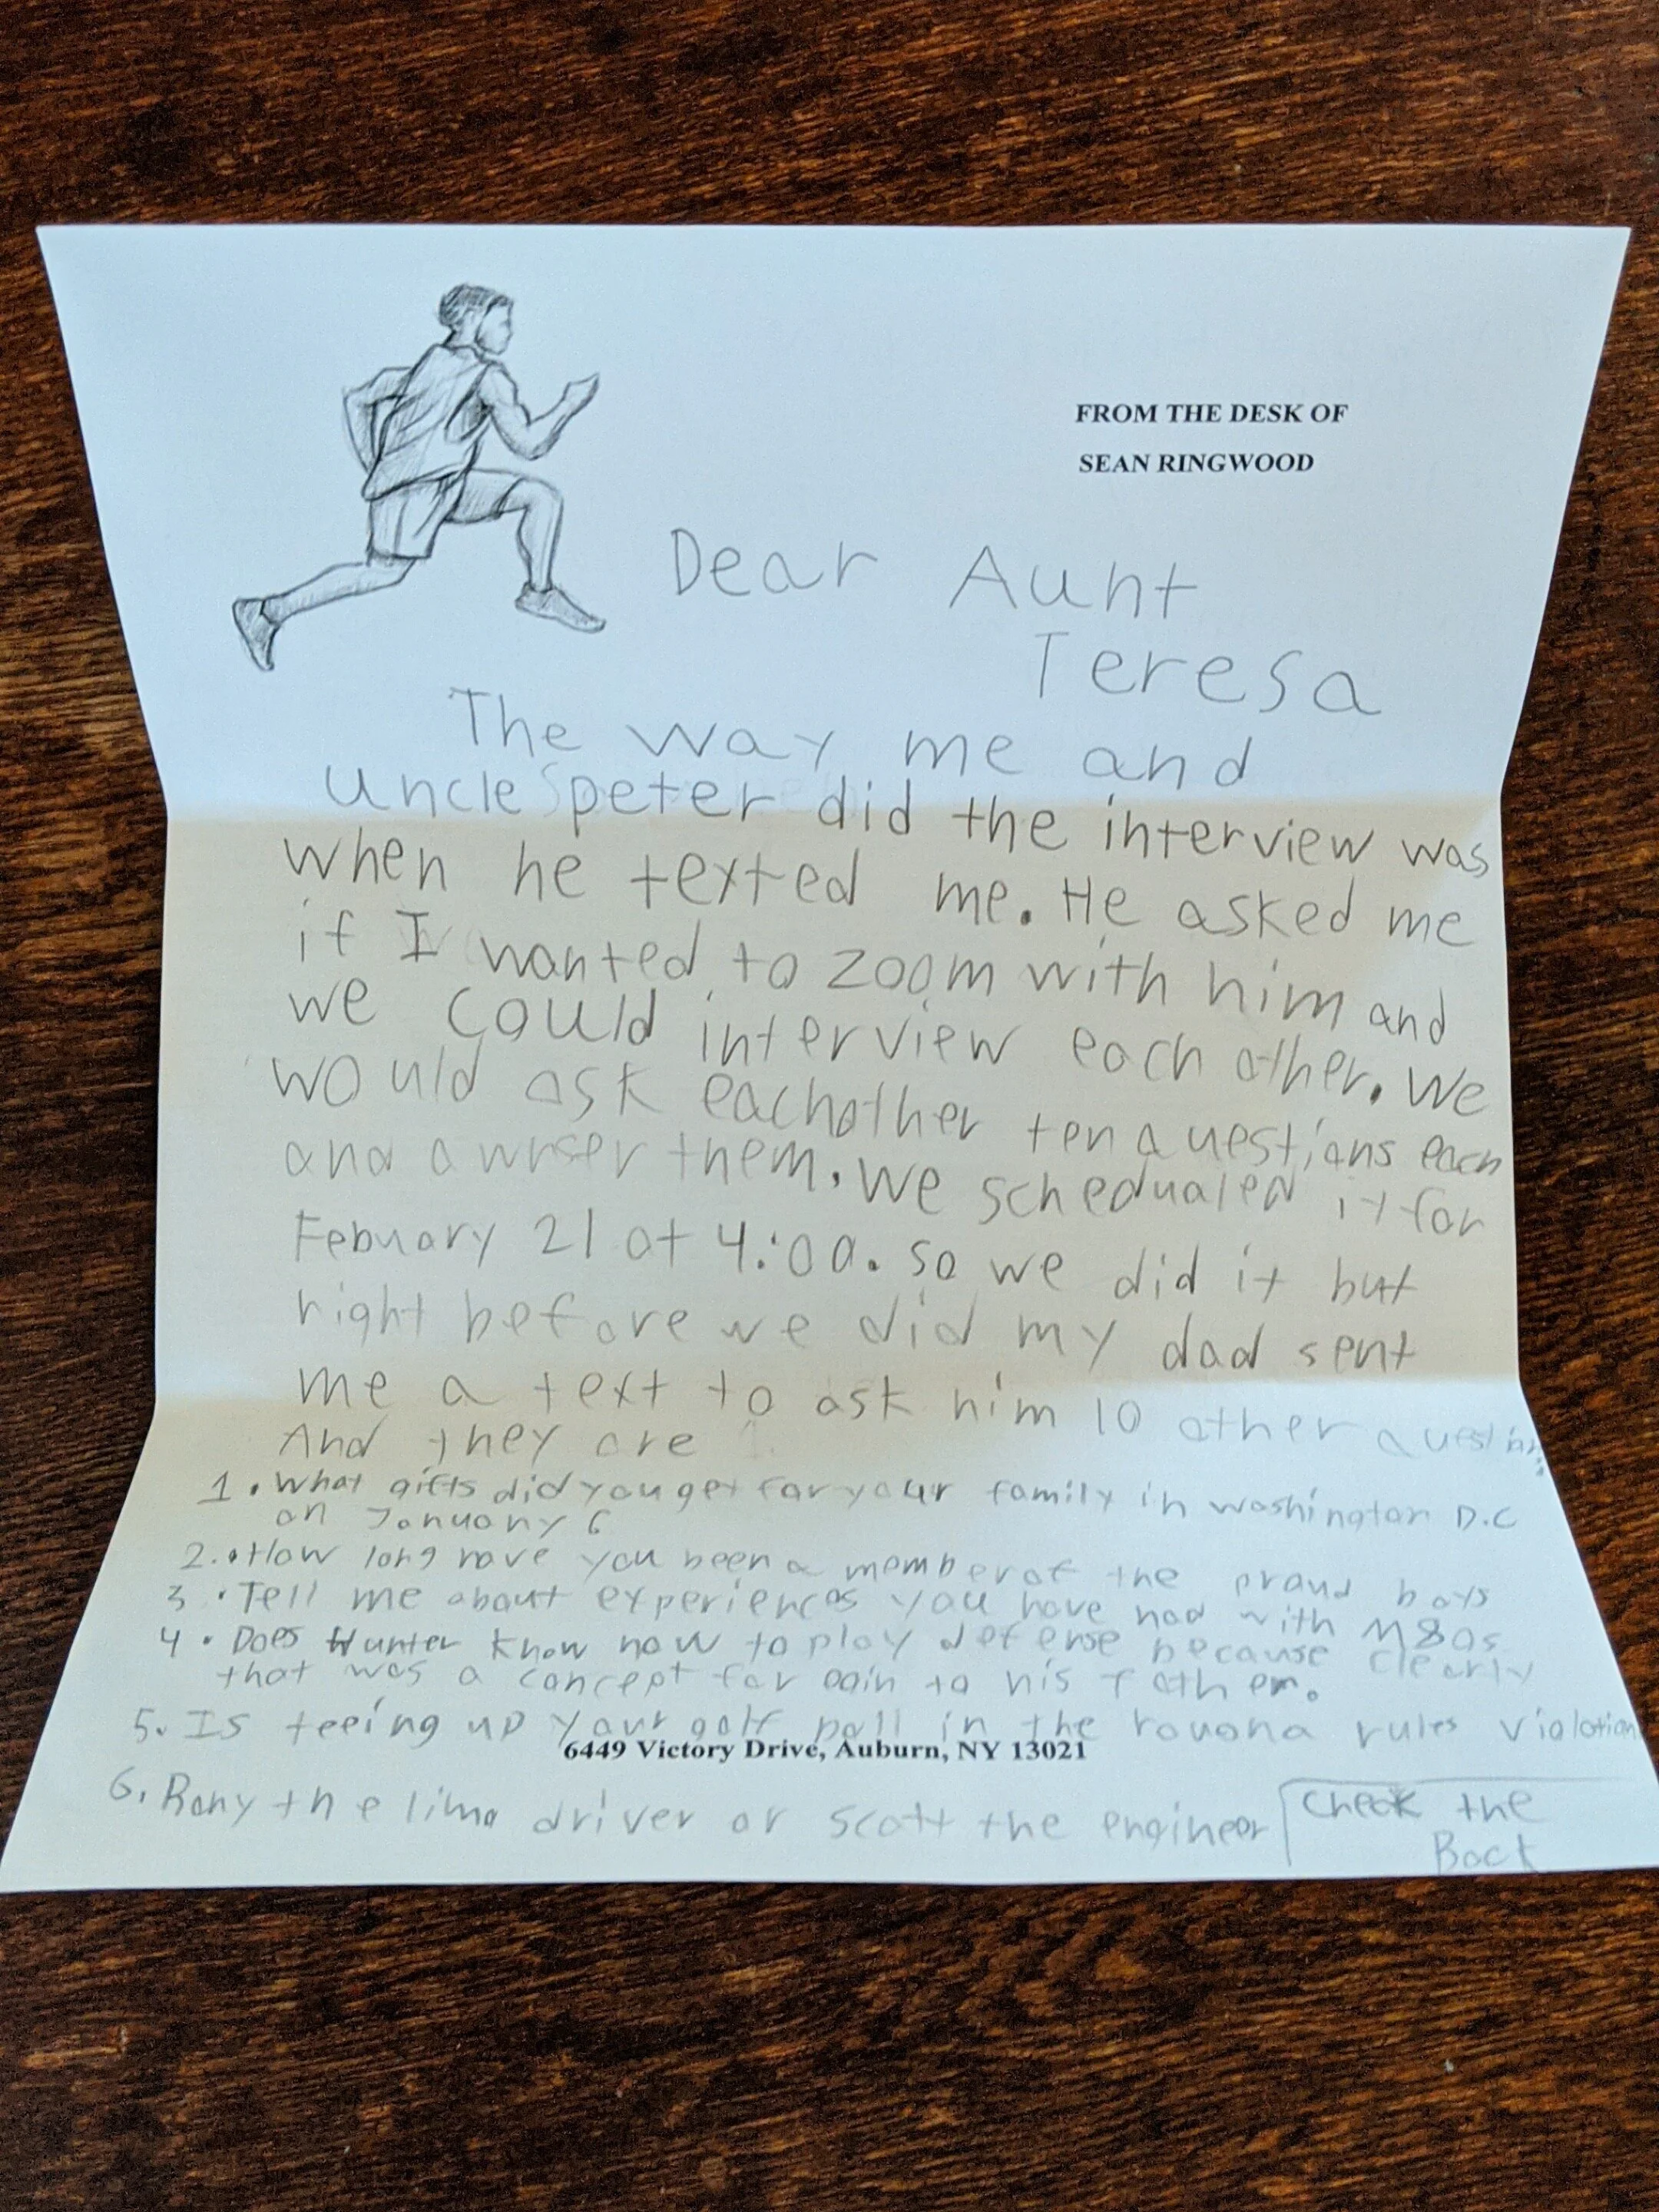 FROM THE DESK OF
SEAN RINGWOOD
Dear Aunt
Teresa
The way me and
uncle peter did the interview was
when he texted me. He asked me
if I wanted to zoom with him and
we could interview each other. We
would ask eachother ten questions each
and awnser them. We schedualed it for
Febuary 21 at 4:00. so we did it but
right before we did my dad sent
me a text to ask him 10 other
And they are
1. What gifts did you get for your family in washington D.C
on January 6
2. How long have you been a member of the proud boys
3. Tell me about experiences you have had with M80s
4. Does Hunter know how to play defense because clearly
that was a concept for to his father.
5. Is teeing up your golf ball in the rules violation
6449 Victory Drive, Auburn, NY 13021
6. the limo driver or scott the engineer
Check the
Back